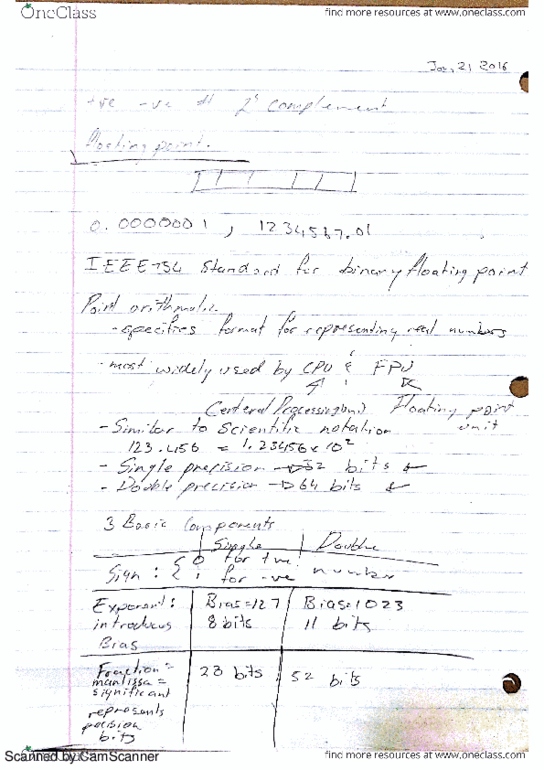 OneClass
find more resources at www.oneclass.com
Jan, 21 2016
+ve -ve # 2' complement
floating point.
0.0000001 , 1234567.01
IEEE754 Standard for binary floating point
Point arithmatic
- specifies format for representing real numbers
- most widely used by CPU & FPU
Centeral Processing unit Floating point unit
- Similar to Scientific notation
123.456 = 1.23456 x 10²
- Single precision → 32 bits ←
- Double precision → 64 bits ←
3 Basic Components
Single Double
Sign : { 0 for +ve
1 for -ve number
Exponent : Bias=127 Bias=1023
introduces 8 bits 11 bits
Bias
Fraction = 23 bits 52 bits
mantissa =
significant
represents
precision
bits
Scanned by CamScanner
find more resources at www.oneclass.com